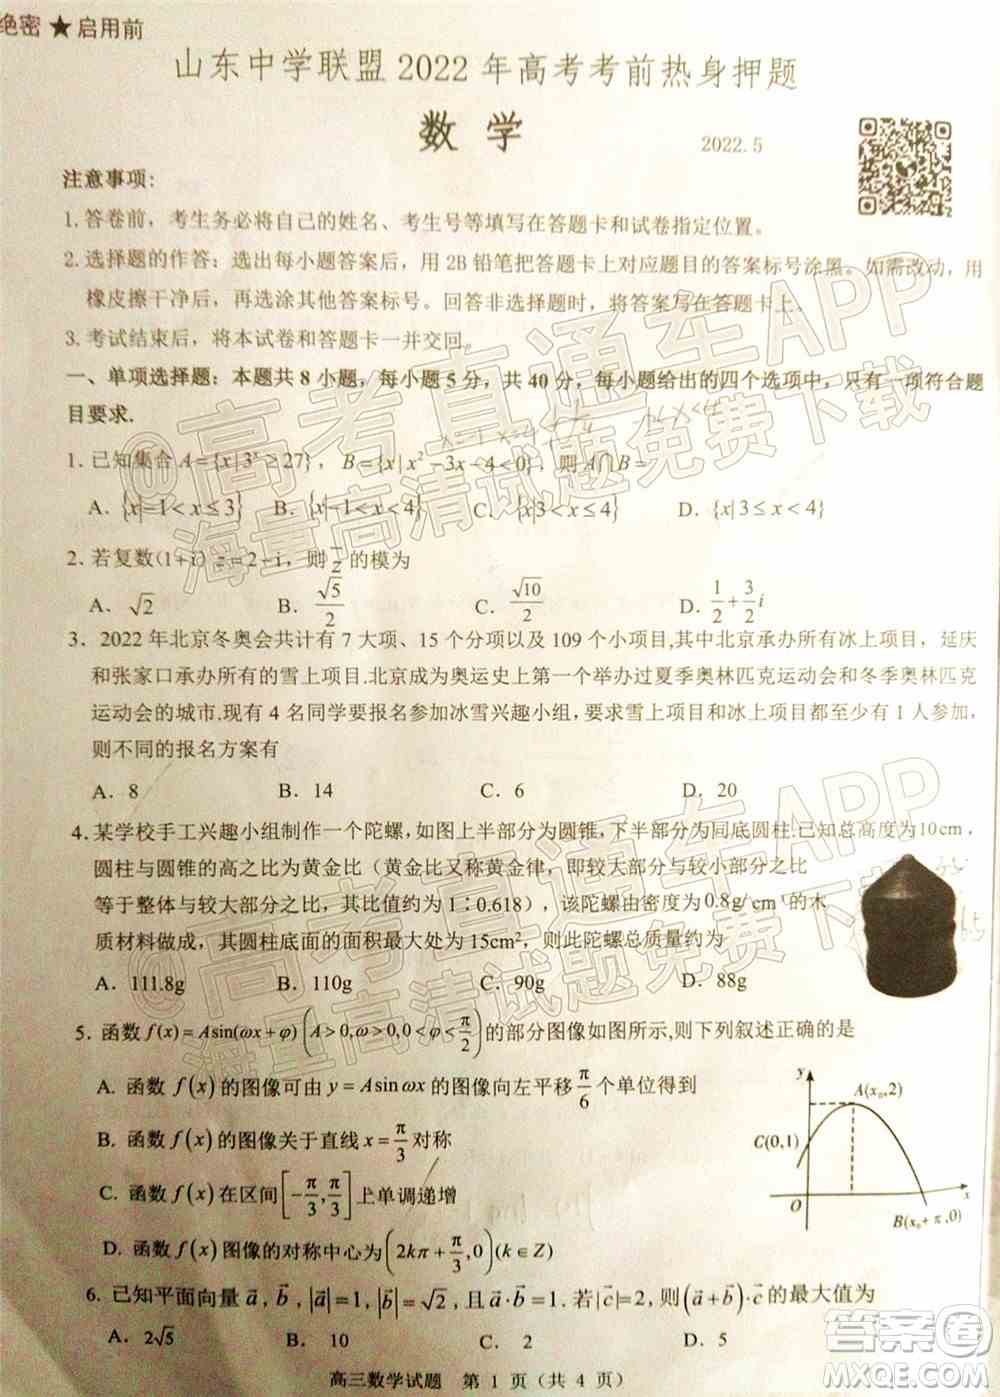 绝密★启用前
山东中学联盟 2022 年高考考前热身押题
数 学
2022.5
注意事项:
1. 答卷前，考生务必将自己的姓名、考生号等填写在答题卡和试卷指定位置。
2. 选择题的作答：选出每小题答案后，用 2B 铅笔把答题卡上对应题目的答案标号涂黑。如需改动，用
橡皮擦干净后，再选涂其他答案标号。回答非选择题时，将答案写在答题卡上。
3. 考试结束后，将本试卷和答题卡一并交回。
一、单项选择题：本题共 8 小题，每小题 5 分，共 40 分，每小题给出的四个选项中，只有一项符合题
目要求.
1. 已知集合 A={x|3ˣ≥27}，B={x|x²−3x−4<0}，则 A∩B=
A. {x|−1<x≤3} B. {x|−1<x<4} C. {x|3<x≤4} D. {x|3≤x<4}
2. 若复数(1+i) z=2−i，则 z 的模为
A. √2 B. √5/2 C. √10/2 D. 1/2+3/2i
3. 2022 年北京冬奥会共计有 7 大项、15 个分项以及 109 个小项目,其中北京承办所有冰上项目，延庆
和张家口承办所有的雪上项目.北京成为奥运史上第一个举办过夏季奥林匹克运动会和冬季奥林匹克
运动会的城市.现有 4 名同学要报名参加冰雪兴趣小组，要求雪上项目和冰上项目都至少有 1 人参加，
则不同的报名方案有
A. 8 B. 14 C. 6 D. 20
4. 某学校手工兴趣小组制作一个陀螺，如图上半部分为圆锥，下半部分为同底圆柱.已知总高度为10cm，
圆柱与圆锥的高之比为黄金比（黄金比又称黄金律，即较大部分与较小部分之比
等于整体与较大部分之比，其比值约为 1∶0.618），该陀螺由密度为0.8g/cm³的木
质材料做成，其圆柱底面的面积最大处为 15cm²，则此陀螺总质量约为
A. 111.8g B. 110g C. 90g D. 88g
5. 函数 f(x)=Asin(ωx+φ)(A>0,ω>0,0<φ<π/2)的部分图像如图所示,则下列叙述正确的是
A. 函数 f(x) 的图像可由 y=Asinωx 的图像向左平移 π/6 个单位得到
B. 函数 f(x) 的图像关于直线 x=π/3 对称
C. 函数 f(x)在区间[−π/3,π/3]上单调递增
D. 函数 f(x)图像的对称中心为(2kπ+π/3,0)(k∈Z)
y
A(x₀,2)
C(0,1)
O
x
B(x₀+π,0)
6. 已知平面向量 a⃗，b⃗，|a⃗|=1,|b⃗|=√2，且 a⃗·b⃗=1.若|c⃗|=2,则(a⃗+b⃗)·c⃗ 的最大值为
A. 2√5 B. 10 C. 2 D. 5
高三数学试题 第 1 页（共 4 页）
@高考直通车APP
海量高清试题免费下载
@高考直通车APP
海量高清试题免费下载
答案圈
MXQE.COM